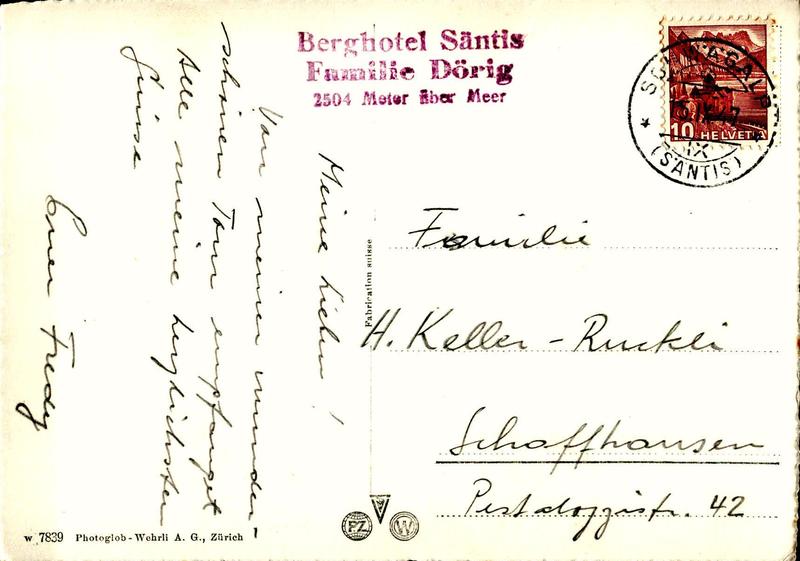 Berghotel Säntis
Familie Dörig
2504 Meter über Meer
SCHWÄGALP
IX
(SÄNTIS)
10 HELVETIA
Meine Lieben!
Von meiner wunder-
schönen Tour empfanget
Alle meine herzlichsten
Grüsse
Euer Fredy
Fabrication suisse
Familie
H. Keller-Ruckli
Schaffhausen
Pestalozzistr. 42
PZ W
w 7839 Photoglob-Wehrli A. G., Zürich